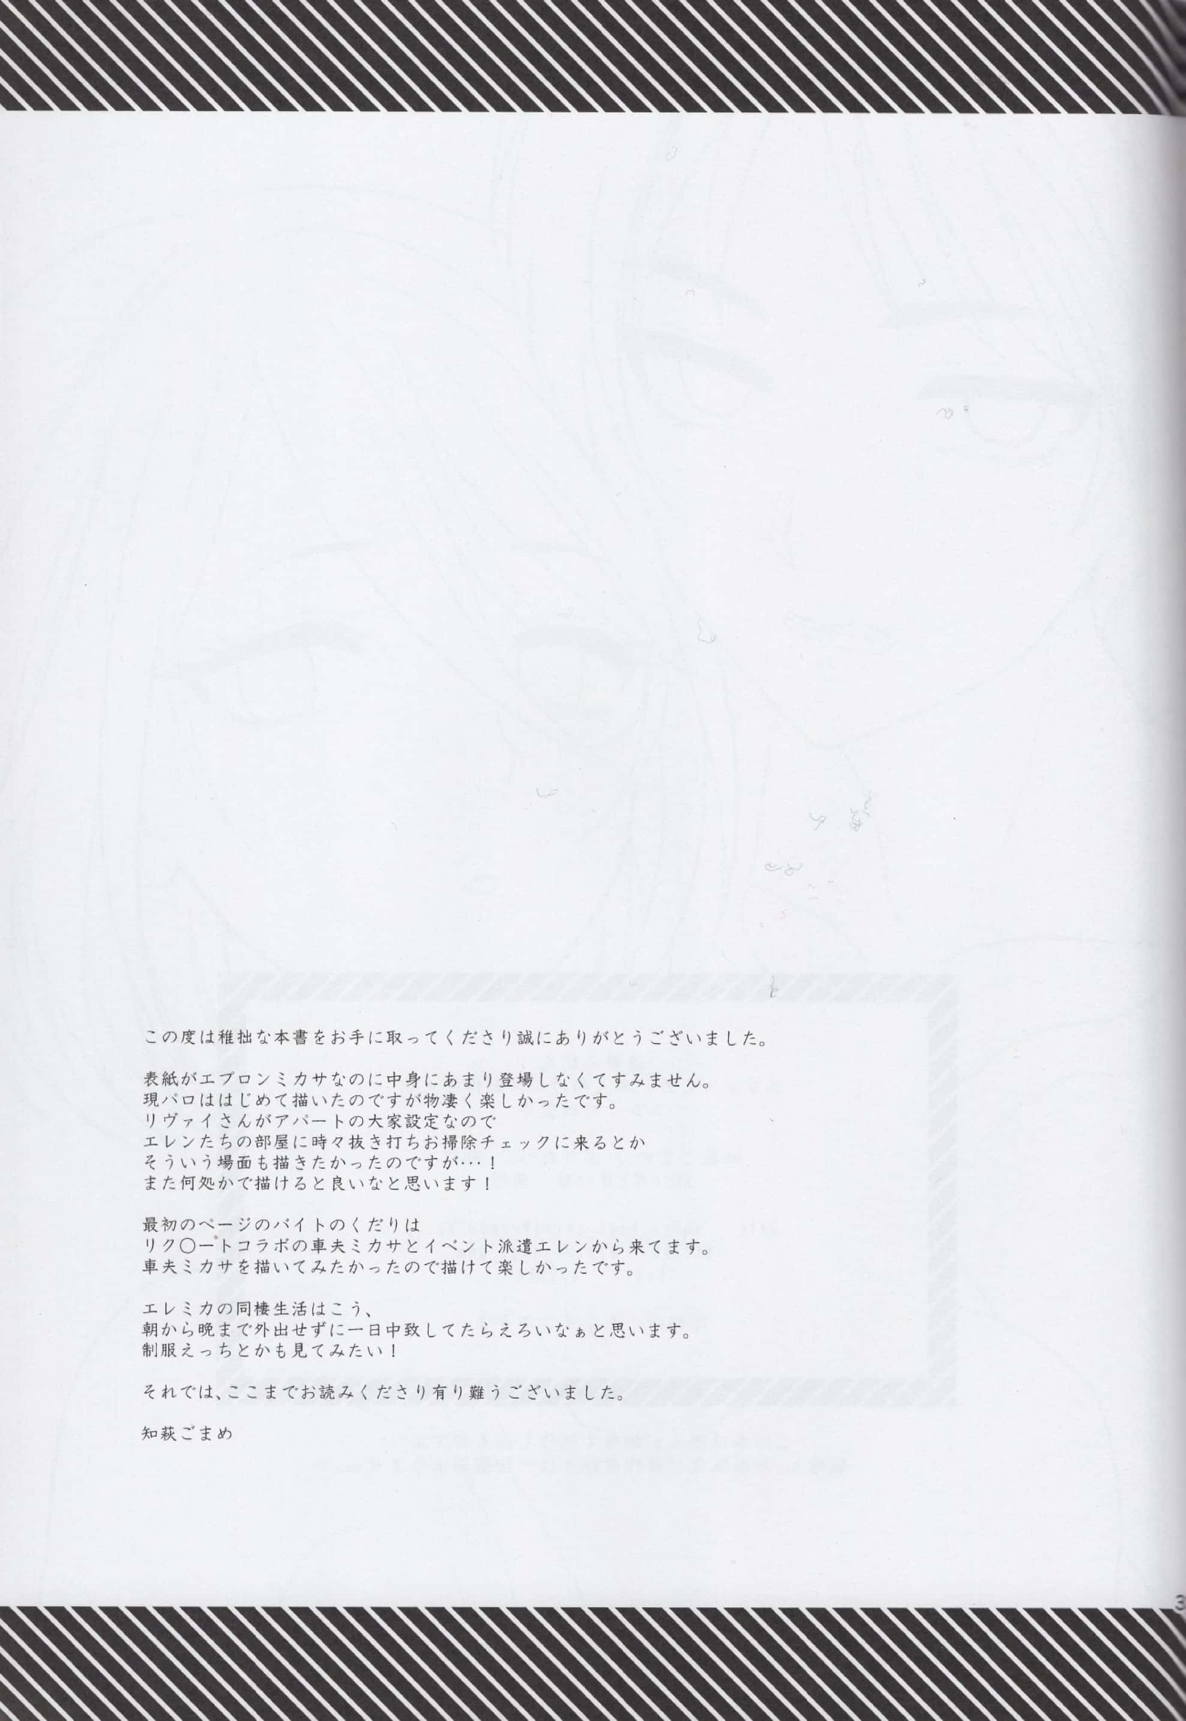 この度は稚拙な本書をお手に取ってくださり誠にありがとうございました。
表紙がエプロンミカサなのに中身にあまり登場しなくてすみません。
現パロははじめて描いたのですが物凄く楽しかったです。
リヴァイさんがアパートの大家設定なので
エレンたちの部屋に時々抜き打ちお掃除チェックに来るとか
そういう場面も描きたかったのですが…！
また何処かで描けると良いなと思います！
最初のページのバイトのくだりは
リク〇ートコラボの車夫ミカサとイベント派遣エレンから来てます。
車夫ミカサを描いてみたかったので描けて楽しかったです。
エレミカの同棲生活はこう、
朝から晩まで外出せずに一日中致してたらえろいなぁと思います。
制服えっちとかも見てみたい！
それでは、ここまでお読みくださり有り難うございました。
知萩ごまめ
3